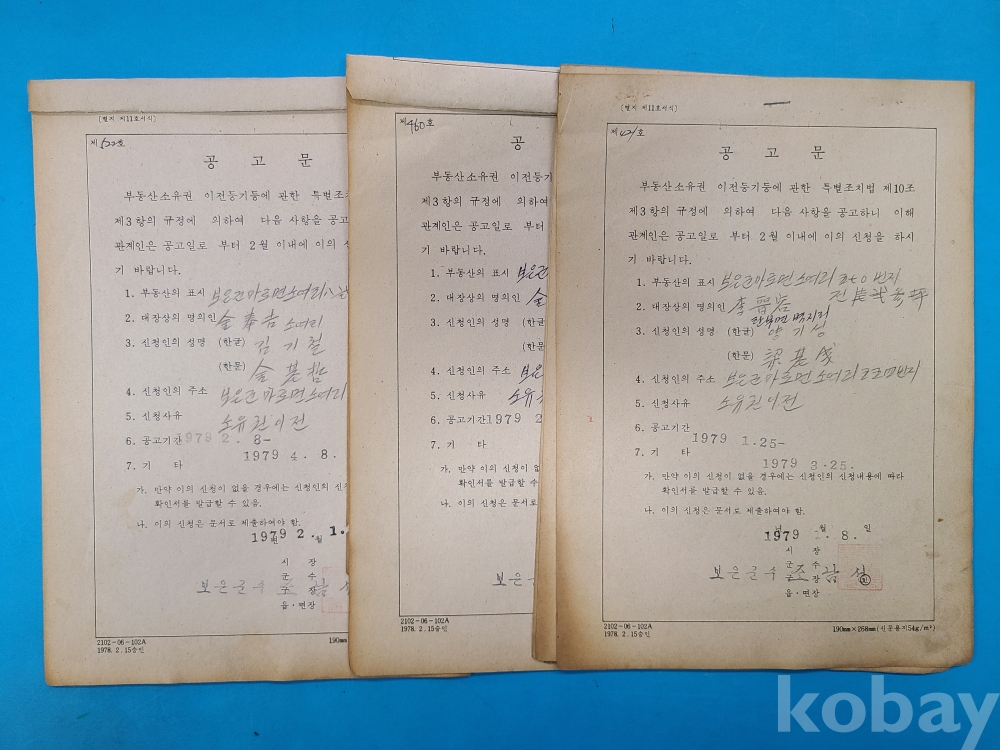 (별지 제11호서식)
제522호
공 고 문
부동산소유권 이전등기등에 관한 특별조치
제3항의 규정에 의하여 다음 사항을 공고
관계인은 공고일로 부터 2월 이내에 이의 신
기 바랍니다.
1. 부동산의 표시 보은군마로면소여리
2. 대장상의 명의인 金奉吉 소여리
3. 신청인의 성명 (한글) 김기철
(한문) 金基
4. 신청인의 주소 보은군마로면소여리
5. 신청사유 소유권이전
6. 공고기간 1979 2. 8-
1979 4. 8.
7. 기 타
가. 만약 이의 신청이 없을 경우에는 신청인의 신
확인서를 발급할 수 있음.
나. 이의 신청은 문서로 제출하여야 함.
1979 2. 1.
년 월
시 장
군 수
구 장
읍·면장
보은군수
2102-06-102A
1978. 2. 15승인
190mm
제460호
공
부동산소유권 이전등기
제3항의 규정에 의하여
관계인은 공고일로 부터
기 바랍니다.
1. 부동산의 표시 보은
2. 대장상의 명의인 金
3. 신청인의 성명 (한글)
(한문)
4. 신청인의 주소 보은
5. 신청사유 소유
6. 공고기간 1979 2
7. 기 타
가. 만약 이의 신청이 없
확인서를 발급할 수
나. 이의 신청은 문서
보은
2102-06-102A
1978. 2. 15승인
(별지 제11호서식)
제421호
공 고 문
부동산소유권 이전등기등에 관한 특별조치법 제10조
제3항의 규정에 의하여 다음 사항을 공고하니 이해
관계인은 공고일로 부터 2월 이내에 이의 신청을 하시
기 바랍니다.
1. 부동산의 표시 보은군마로면소여리 번지
2. 대장상의 명의인 李
3. 신청인의 성명 (한글) 양기성
(한문) 梁基成
4. 신청인의 주소 보은군마로면소여리 번지
5. 신청사유 소유권이전
6. 공고기간
1979 1.25-
7. 기 타
1979 3.25.
가. 만약 이의 신청이 없을 경우에는 신청인의 신청내용에 따라
확인서를 발급할 수 있음.
나. 이의 신청은 문서로 제출하여야 함.
년 월 일
1979 . 8.
시 장
군 수
구 장
읍·면장
보은군수 조남성
2102-06-102A
1978. 2. 15승인
190mm×268mm(신문용지54g/m²)
kobay